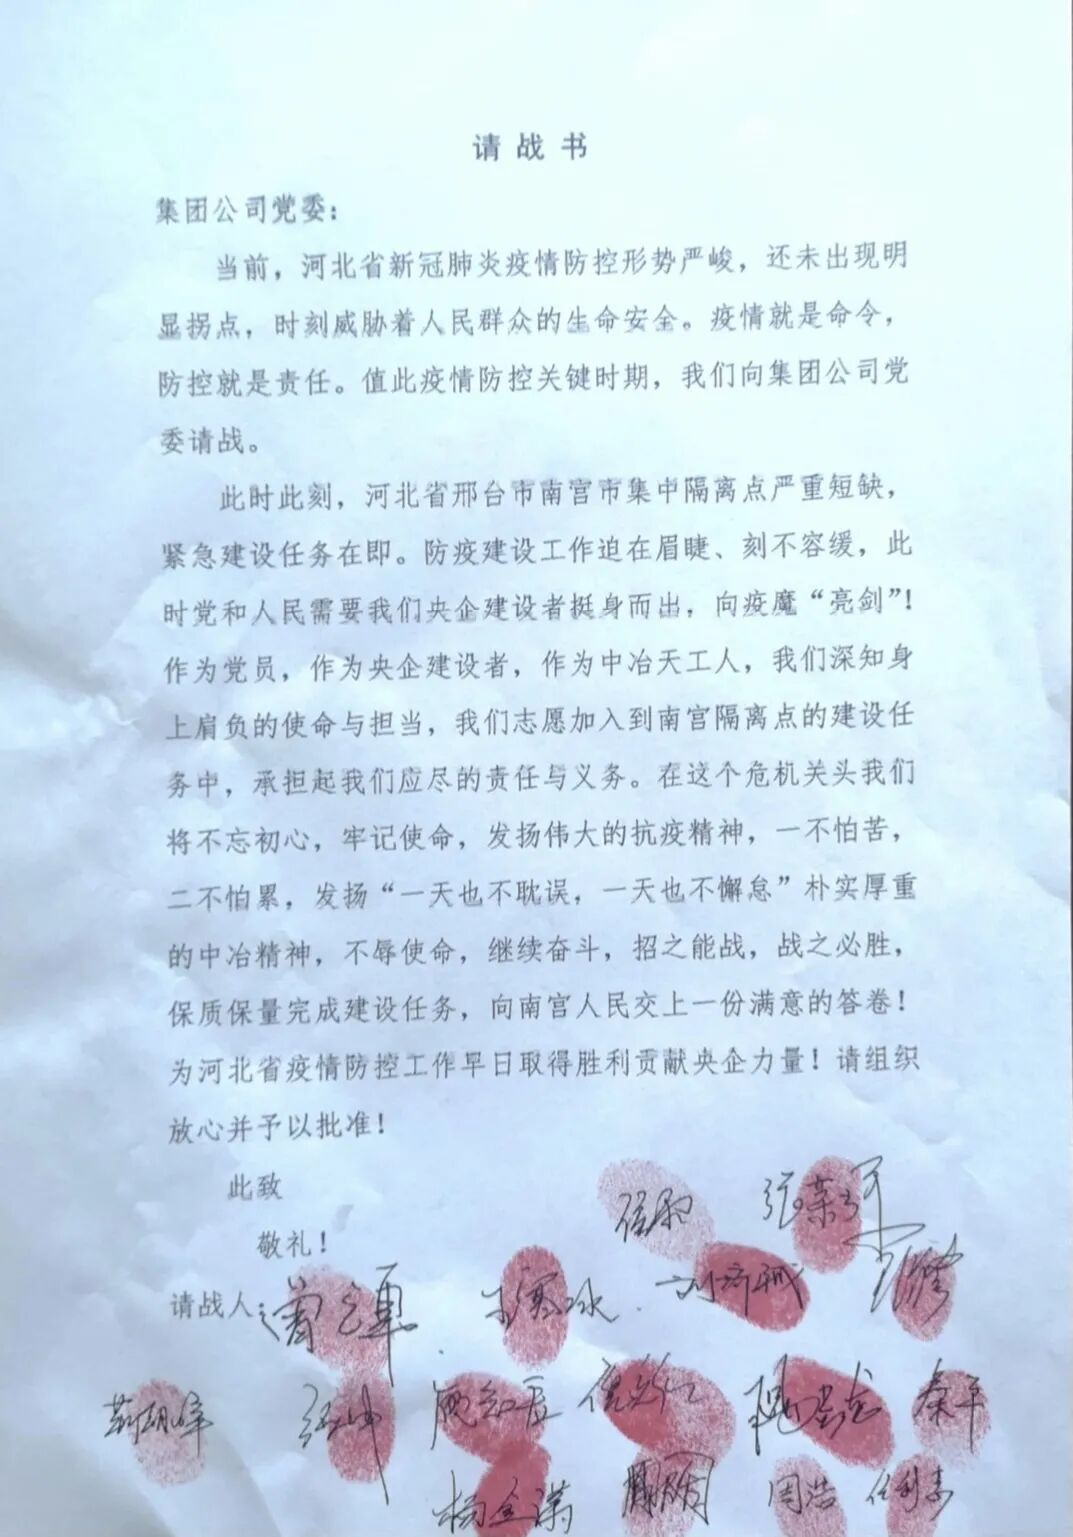 请战书
集团公司党委:
当前，河北省新冠肺炎疫情防控形势严峻，还未出现明
显拐点，时刻威胁着人民群众的生命安全。疫情就是命令，
防控就是责任。值此疫情防控关键时期，我们向集团公司党
委请战。
此时此刻，河北省邢台市南宫市集中隔离点严重短缺，
紧急建设任务在即。防疫建设工作迫在眉睫、刻不容缓，此
时党和人民需要我们央企建设者挺身而出，向疫魔“亮剑”！
作为党员，作为央企建设者，作为中冶天工人，我们深知身
上肩负的使命与担当，我们志愿加入到南宫隔离点的建设任
务中，承担起我们应尽的责任与义务。在这个危机关头我们
将不忘初心，牢记使命，发扬伟大的抗疫精神，一不怕苦，
二不怕累，发扬“一天也不耽误，一天也不懈怠”朴实厚重
的中冶精神，不辱使命，继续奋斗，招之能战，战之必胜，
保质保量完成建设任务，向南宫人民交上一份满意的答卷！
为河北省疫情防控工作早日取得胜利贡献央企力量！请组织
放心并予以批准！
此致
敬礼！
请战人：
秦平
周浩